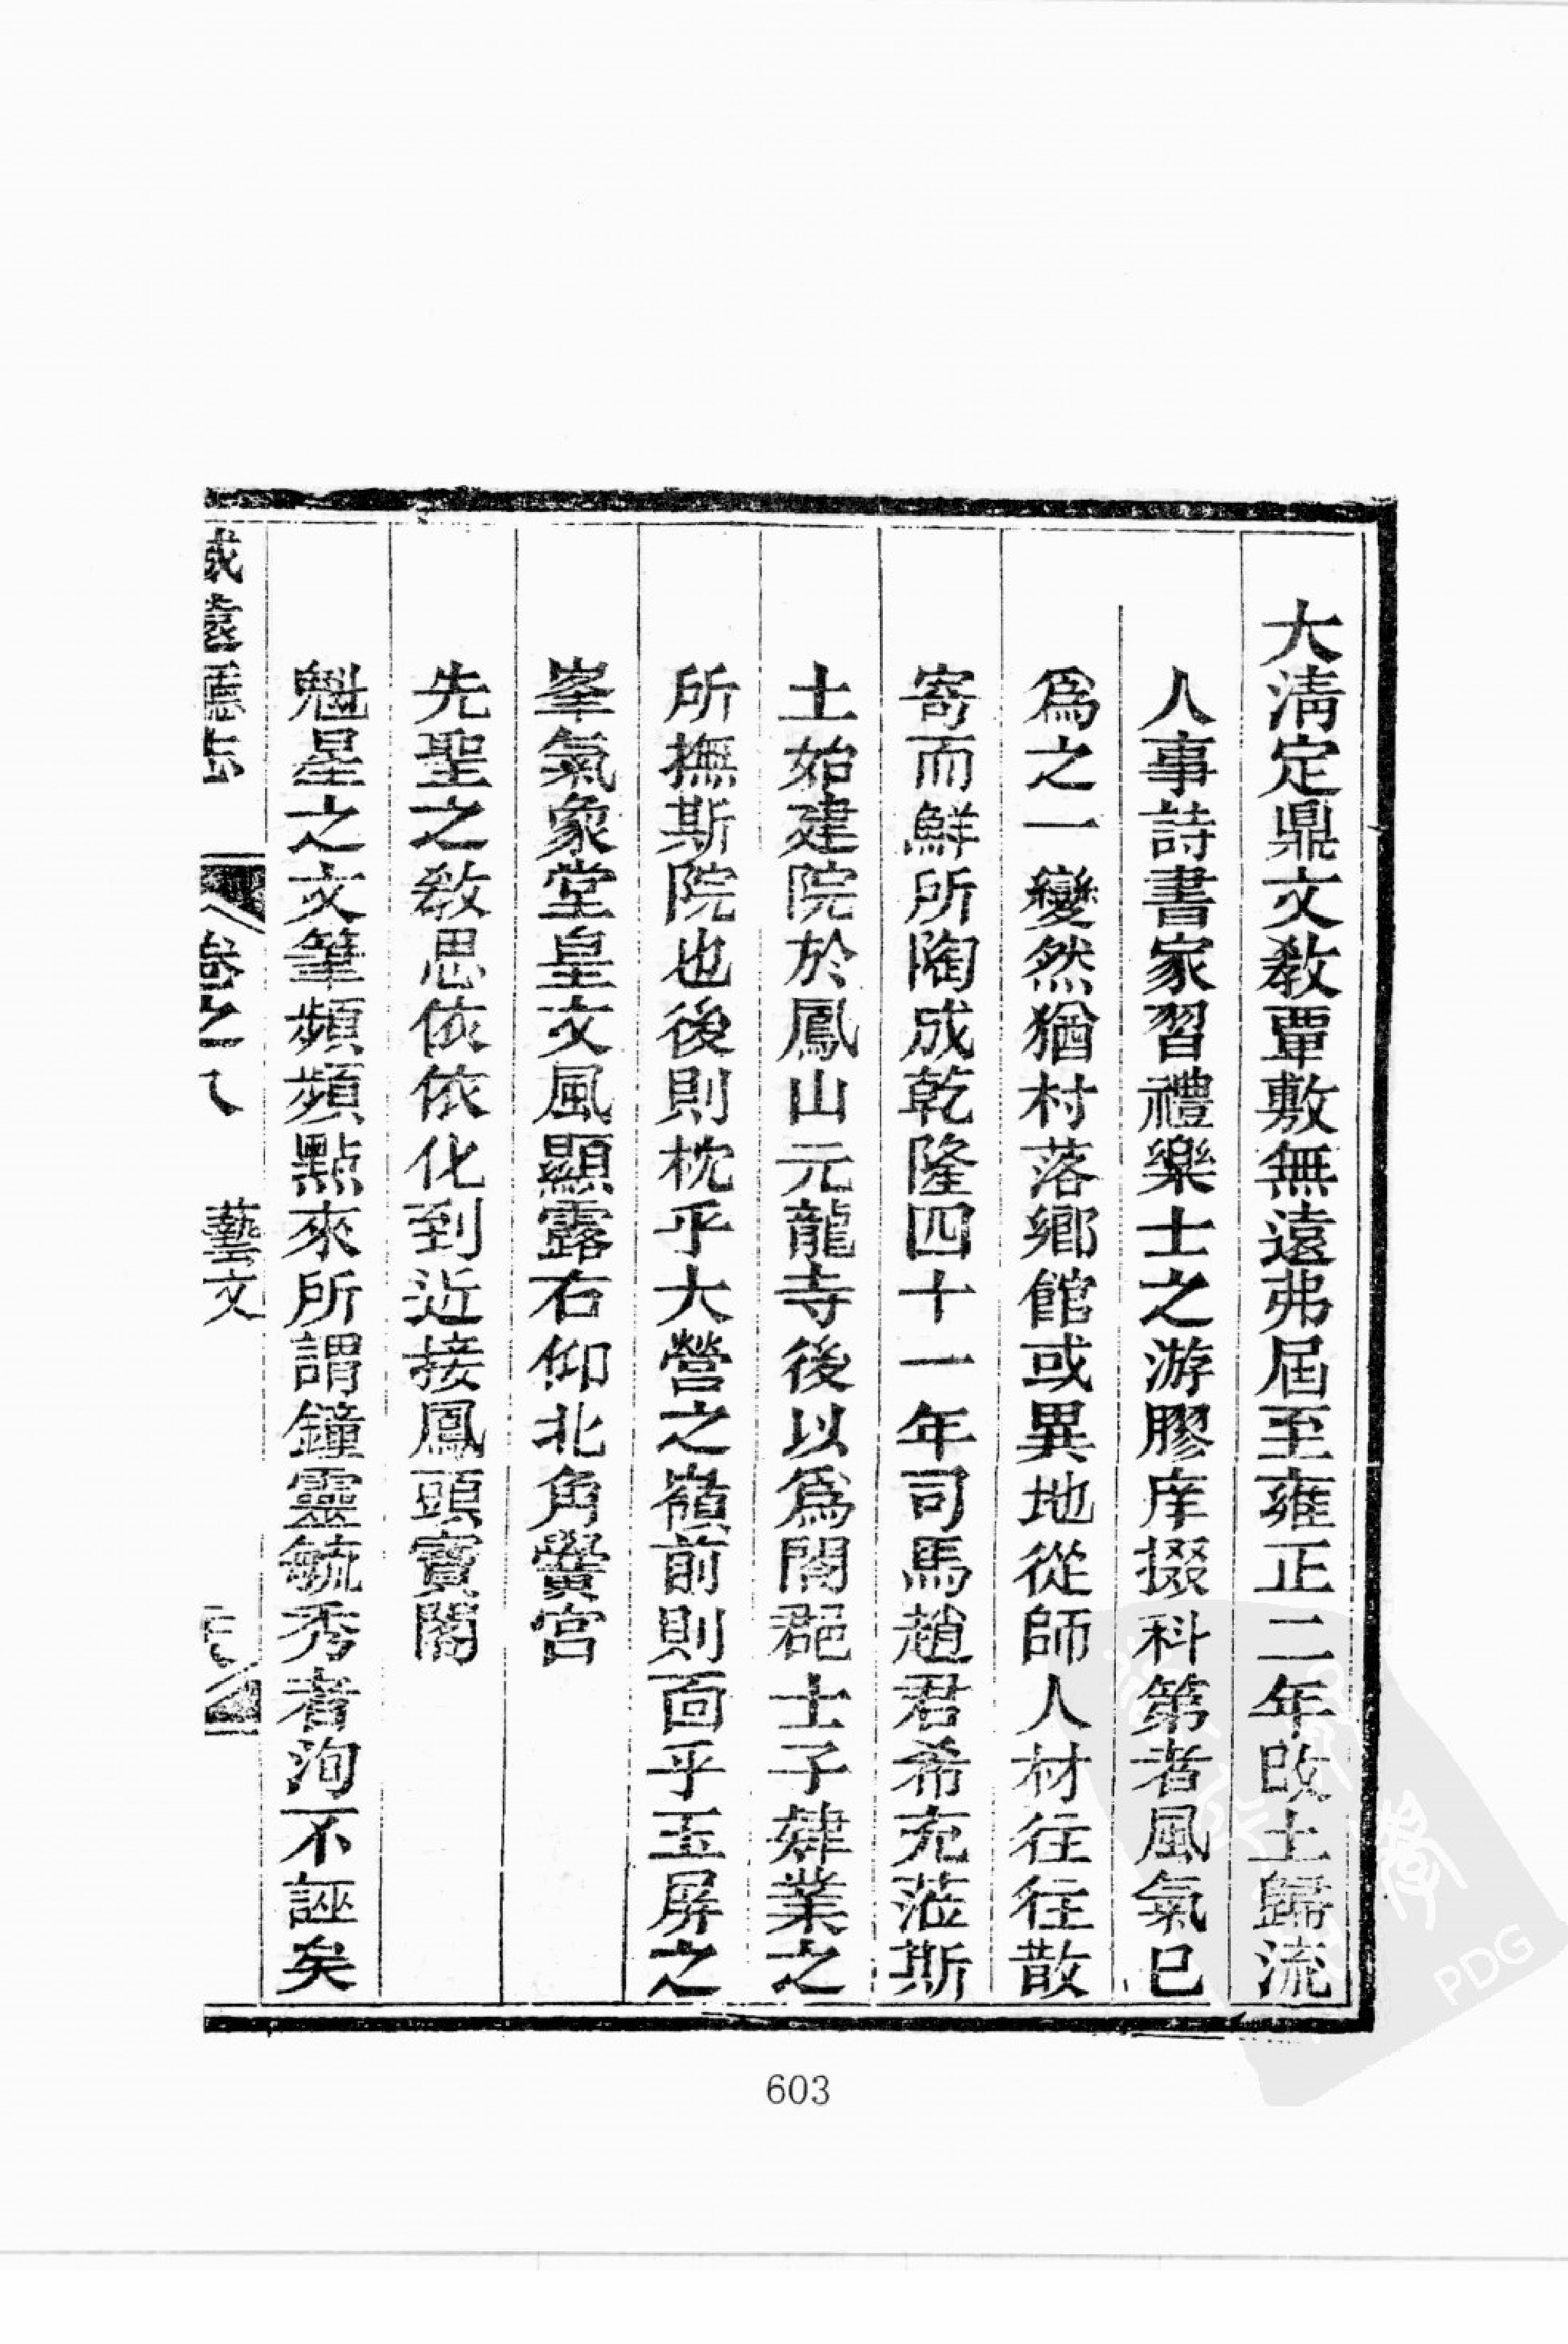 大淸定鼎文敎覃敷無遠弗屆至雍正二年改土歸流
人事詩書家習禮樂士之游膠庠掇科第者風氣已
爲之一變然猶村落鄉館或異地從師人材往往散
寄而鮮所陶成乾隆四十一年司馬趙君希充蒞斯
土始建院於鳳山元龍寺後以爲閤郡士子肄業之
所撫斯院也後則枕乎大營之嶺前則面乎玉屏之
峯氣象堂皇文風顯露右仰北角黌宮
先聖之敎思依依化到近接鳳頭寶閣
魁星之文筆頻頻點來所謂鐘靈毓秀者洵不誣矣
威遠廳志 卷之八 藝文
603
PDG